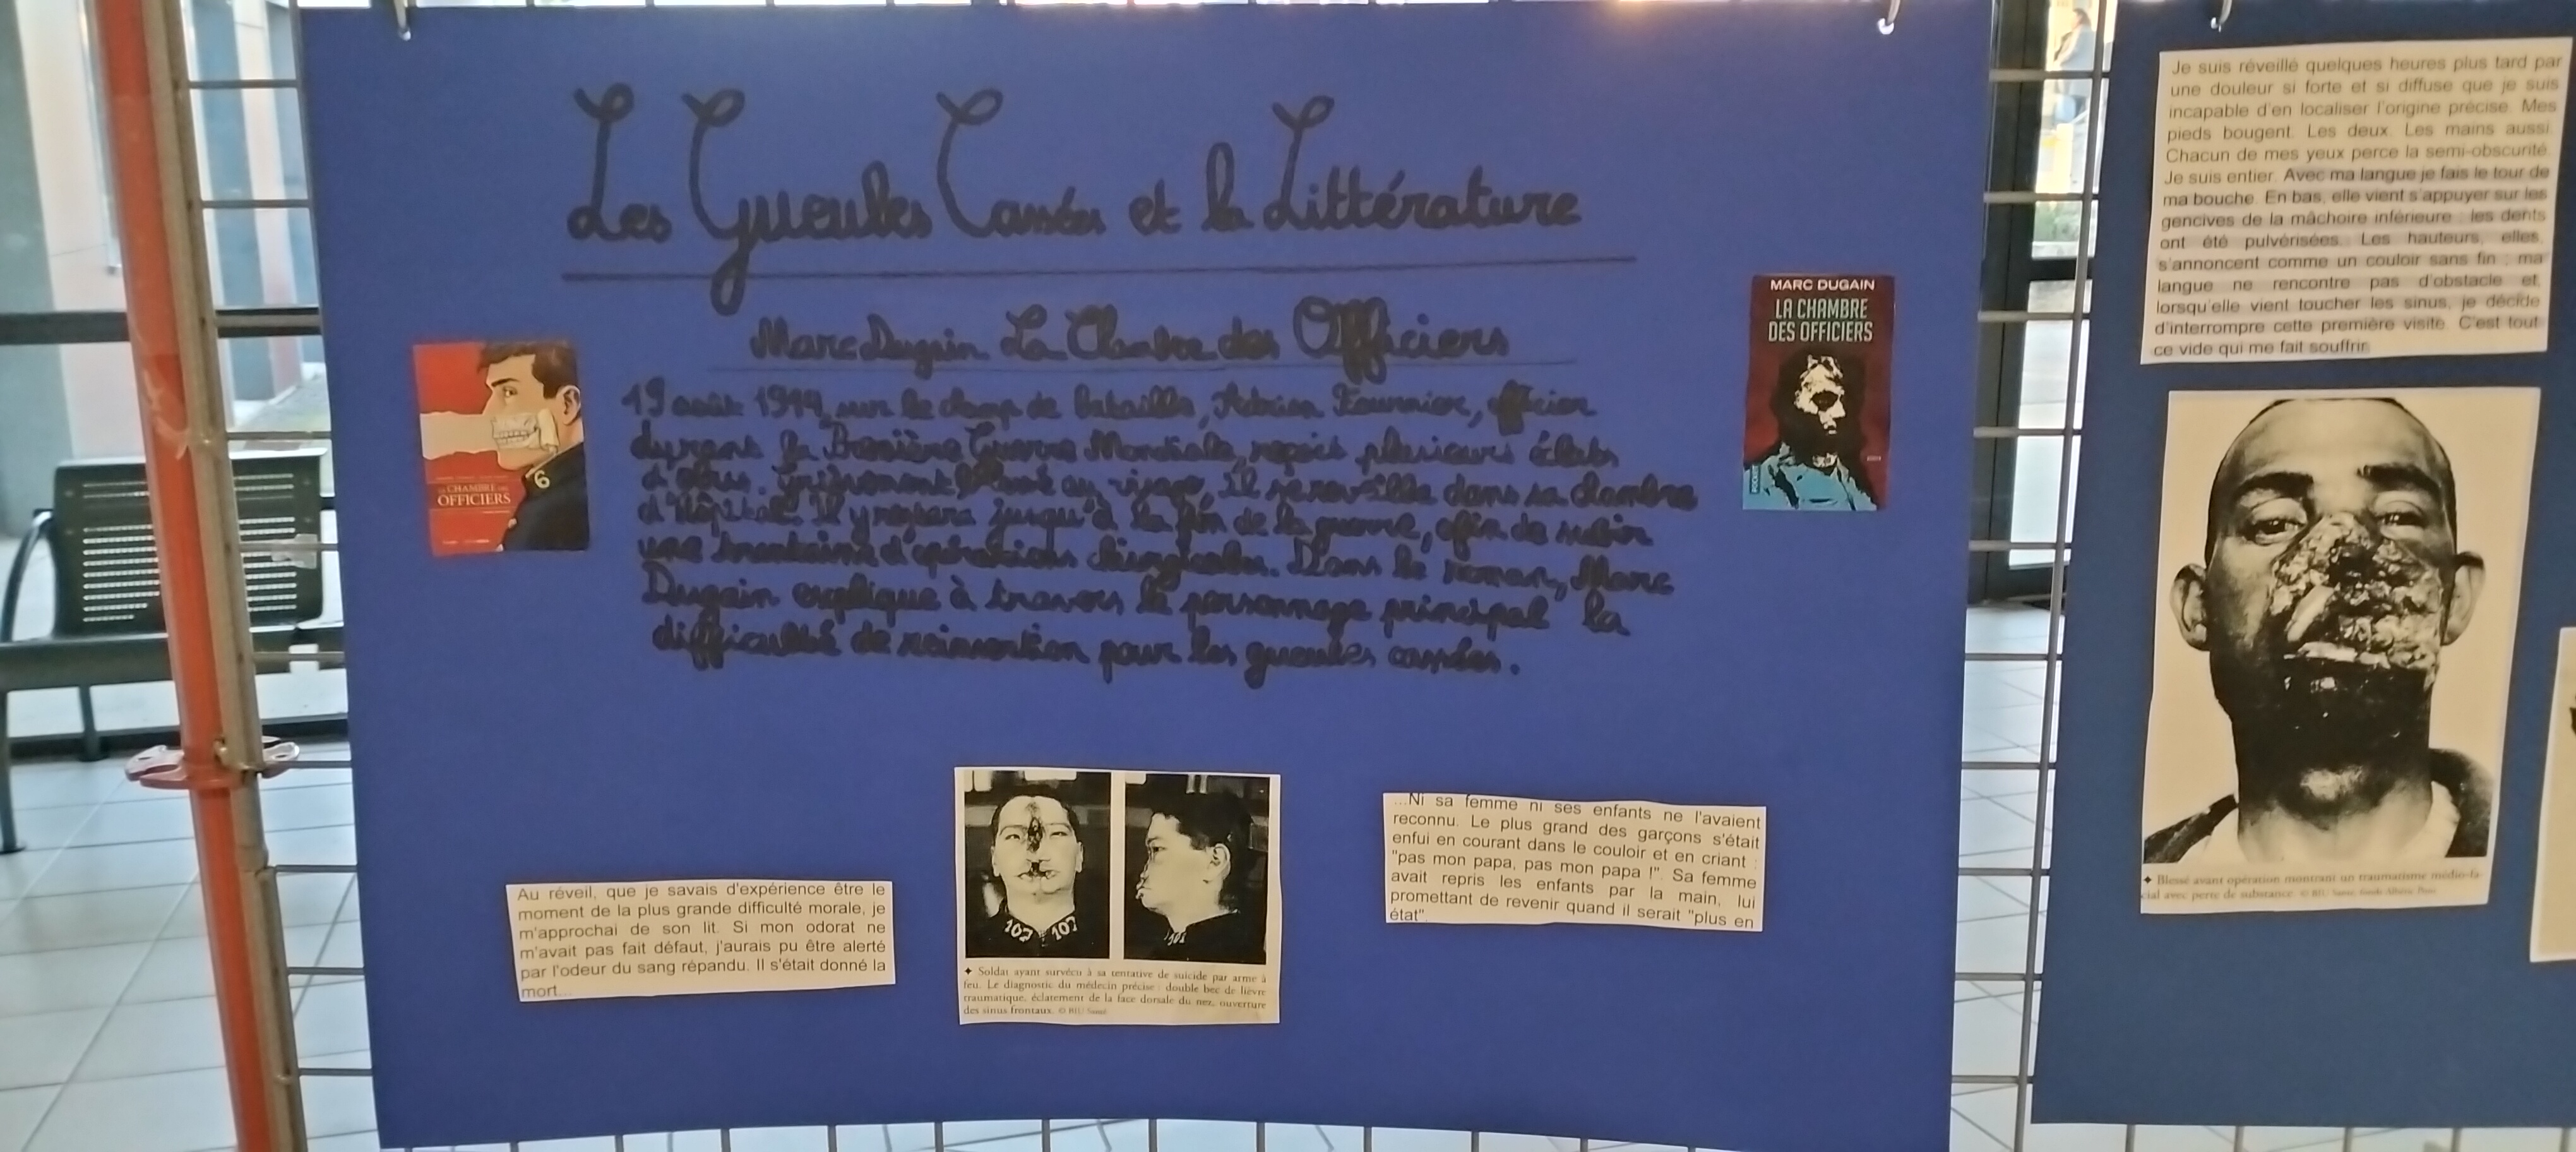 Les Gueules Cassées et la Littérature
Marc Dugain La Chambre des Officiers
CHAMBRE DES
OFFICIERS
6
MARC DUGAIN
LA CHAMBRE
DES OFFICIERS
19 août 1914, sur le champ de bataille, Adrien Fournier, officier
durant la Première Guerre Mondiale, reçoit plusieurs éclats
d'obus. Grièvement blessé au visage, il se réveille dans sa chambre
d'hôpital. Il y restera jusqu'à la fin de la guerre, afin de subir
une trentaine d'opérations chirurgicales. Dans le roman, Marc
Dugain explique à travers le personnage principal la
difficulté de réinsertion pour les gueules cassées.
Au réveil, que je savais d'expérience être le
moment de la plus grande difficulté morale, je
m'approchai de son lit. Si mon odorat ne
m'avait pas fait défaut, j'aurais pu être alerté
par l'odeur du sang répandu. Il s'était donné la
mort...
107 107
✦ Soldat ayant survécu à sa tentative de suicide par arme à
feu. Le diagnostic du médecin précise : double bec de lièvre
traumatique, éclatement de la face dorsale du nez, ouverture
des sinus frontaux. © BIU Santé
...Ni sa femme ni ses enfants ne l'avaient
reconnu. Le plus grand des garçons s'était
enfui en courant dans le couloir et en criant :
"pas mon papa, pas mon papa !". Sa femme
avait repris les enfants par la main, lui
promettant de revenir quand il serait "plus en
état".
Je suis réveillé quelques heures plus tard par
une douleur si forte et si diffuse que je suis
incapable d'en localiser l'origine précise. Mes
pieds bougent. Les deux. Les mains aussi.
Chacun de mes yeux perce la semi-obscurité.
Je suis entier. Avec ma langue je fais le tour de
ma bouche. En bas, elle vient s'appuyer sur les
gencives de la mâchoire inférieure ; les dents
ont été pulvérisées. Les hauteurs, elles,
s'annoncent comme un couloir sans fin ; ma
langue ne rencontre pas d'obstacle et,
lorsqu'elle vient toucher les sinus, je décide
d'interrompre cette première visite. C'est tout
ce vide qui me fait souffrir.
✦ Blessé avant opération montrant un traumatisme médio-fa-
cial avec perte de substance. © BIU Santé